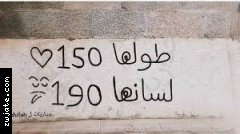 طولها 150
لسانها 190
zuwiate.com